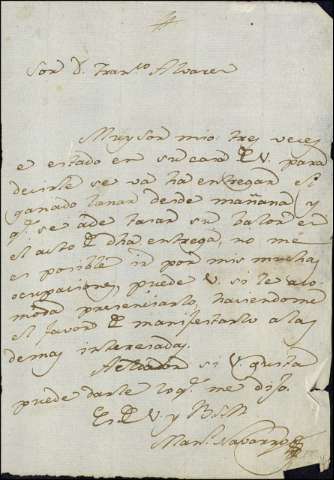 Sor. D. Franco. Alvarez
Muy Sor mio tres veces
e estado en su casa de V. para
decirle se va ha entregar el
ganado lanar desde mañana y
q.e se a de tasar su valor en
el acto de dha entrega, no me
es posible ir por mis muchas
ocupaciones, puede V. si le aco
moda presenciarlo, haciendome
el favor de manifestarlo a los
demas interesados.
si V. gusta
puede darle lo q.e me dijo.
Es de V. y B.S.M.
Man.l Navarro